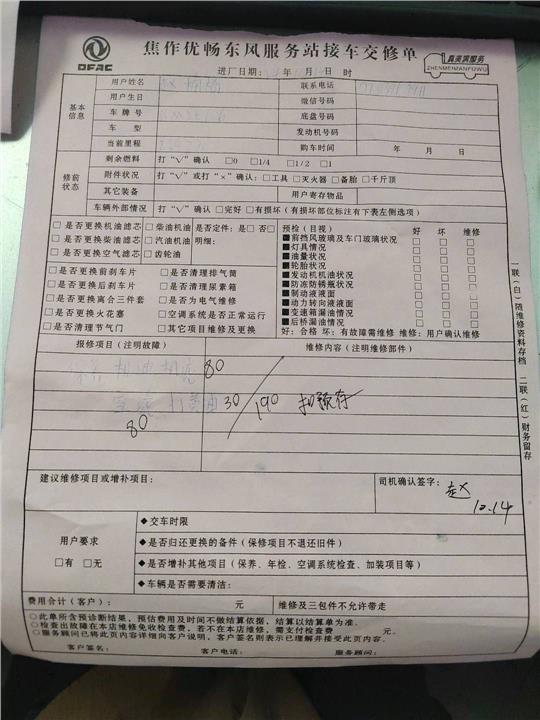 DFAC
焦作优畅东风服务站接车交修单
真美满服务
ZHENMEIMANFUWU
进厂日期: 年 月 日 时
基本信息
用户姓名 联系电话
用户生日 微信号码
车牌号 底盘号码
车型 发动机号码
当前里程 购车时间 年 月 日
修前状态
剩余燃料 打“√”确认 □0 □1/4 □1/2 □1
附件状况 打“√”或打“×”确认:□工具 □灭火器 □备胎 □千斤顶
其它装备 用户寄存物品
车辆外部情况 打“√”确认 □完好 □有损坏(有损坏部位标注有下表左侧选项)
□是否更换机油滤芯 □柴油机油 是否定件:□是 □否
□是否更换柴油滤芯 □汽油机油 明细:
□是否更换空气滤芯 □齿轮油
□是否更换前刹车片 □是否清理排气筒
□是否更换后刹车片 □是否清理尿素箱
□是否更换离合三件套 □是否为电气维修
□是否更换火花塞 □空调系统是否正常运行
□是否清理节气门 □其它项目维修及更换
预检(目视) 好 坏 维修
■前挡风玻璃及车门玻璃状况 □ □ □
■灯具情况 □ □ □
■油量状况 □ □ □
■轮胎状况 □ □ □
■发动机机油状况 □ □ □
■防冻防锈瓶状况 □ □ □
■制动液液面 □ □ □
■动力转向液液面 □ □ □
■变速箱漏油情况 □ □ □
■后桥漏油情况 □ □ □
好:合格 坏:有故障需维修 维修:用户确认维修
报修项目(注明故障) 维修内容(注明维修部件)
保养 机油机滤 80
打黄油 30 190 扣预存
80
建议维修项目或增补项目: 司机确认签字:赵
10.14
用户要求
□有 □无
◆交车时限
◆是否归还更换的备件(保修项目不退还旧件)
◆是否增补其他项目(保养、年检、空调系统检查、加装项目等)
◆车辆是否需要清洁:
费用合计(客户): 元 维修及三包件不允许带走
○此单所含预诊断结果,预估费用及时间不做结算依据,结算以结算单为准.
○检查出故障在本店维修免收检查费,若不在本店维修,需支付检查费 元.
○服务顾问已将此页内容详细向客户说明,客户签名则表示已理解并接受此页内容.
客户签名: 客户电话: 服务顾问:
一联(白)随维修资料存档 二联(红)财务留存